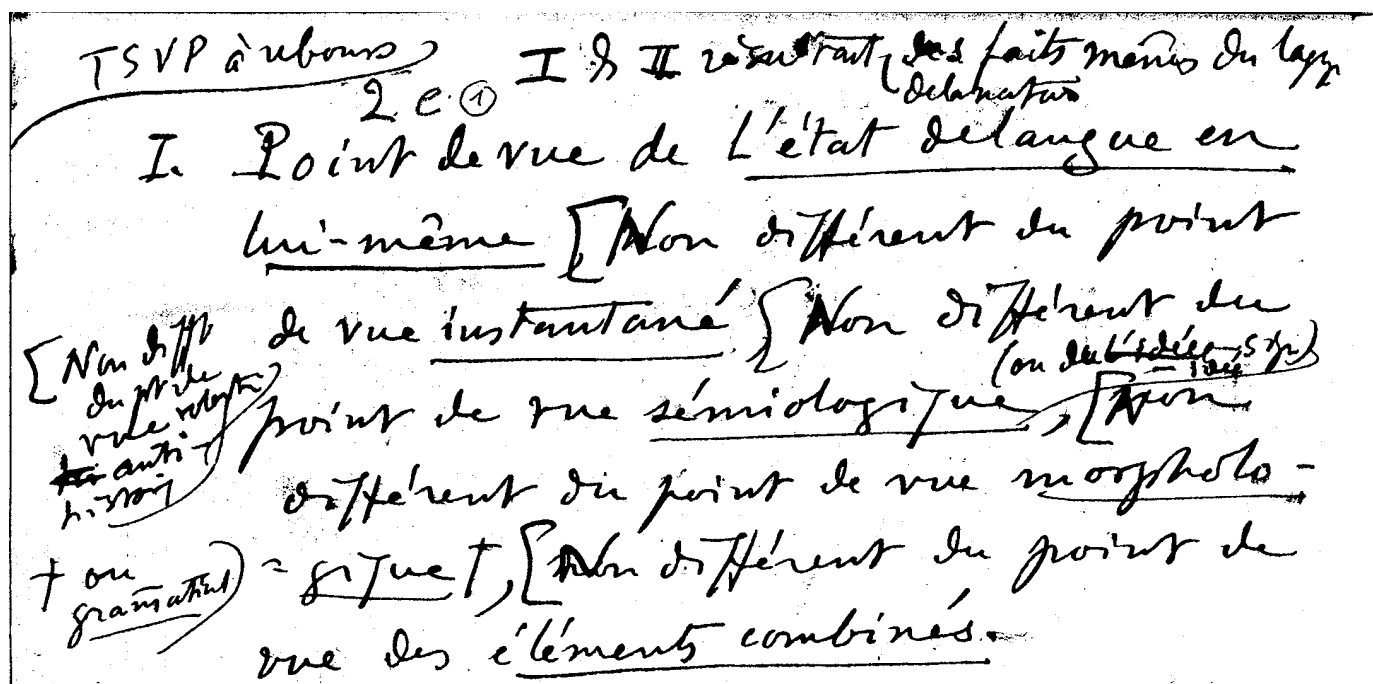 TSVP à rebours
I & II résultant des faits mêmes du lagage
de la nature
2 e ①
I. Point de vue de l'état de langue en
lui-même [Non différent du point
de vue instantané [Non différent du
(ou du signe-idée)
point de vue sémiologique, [Non
différent du point de vue morpholo-
=gique †, [Non différent du point de
vue des éléments combinés.
[Non difft
du pt de
vue
anti-
histoiq
† ou
gramatical)